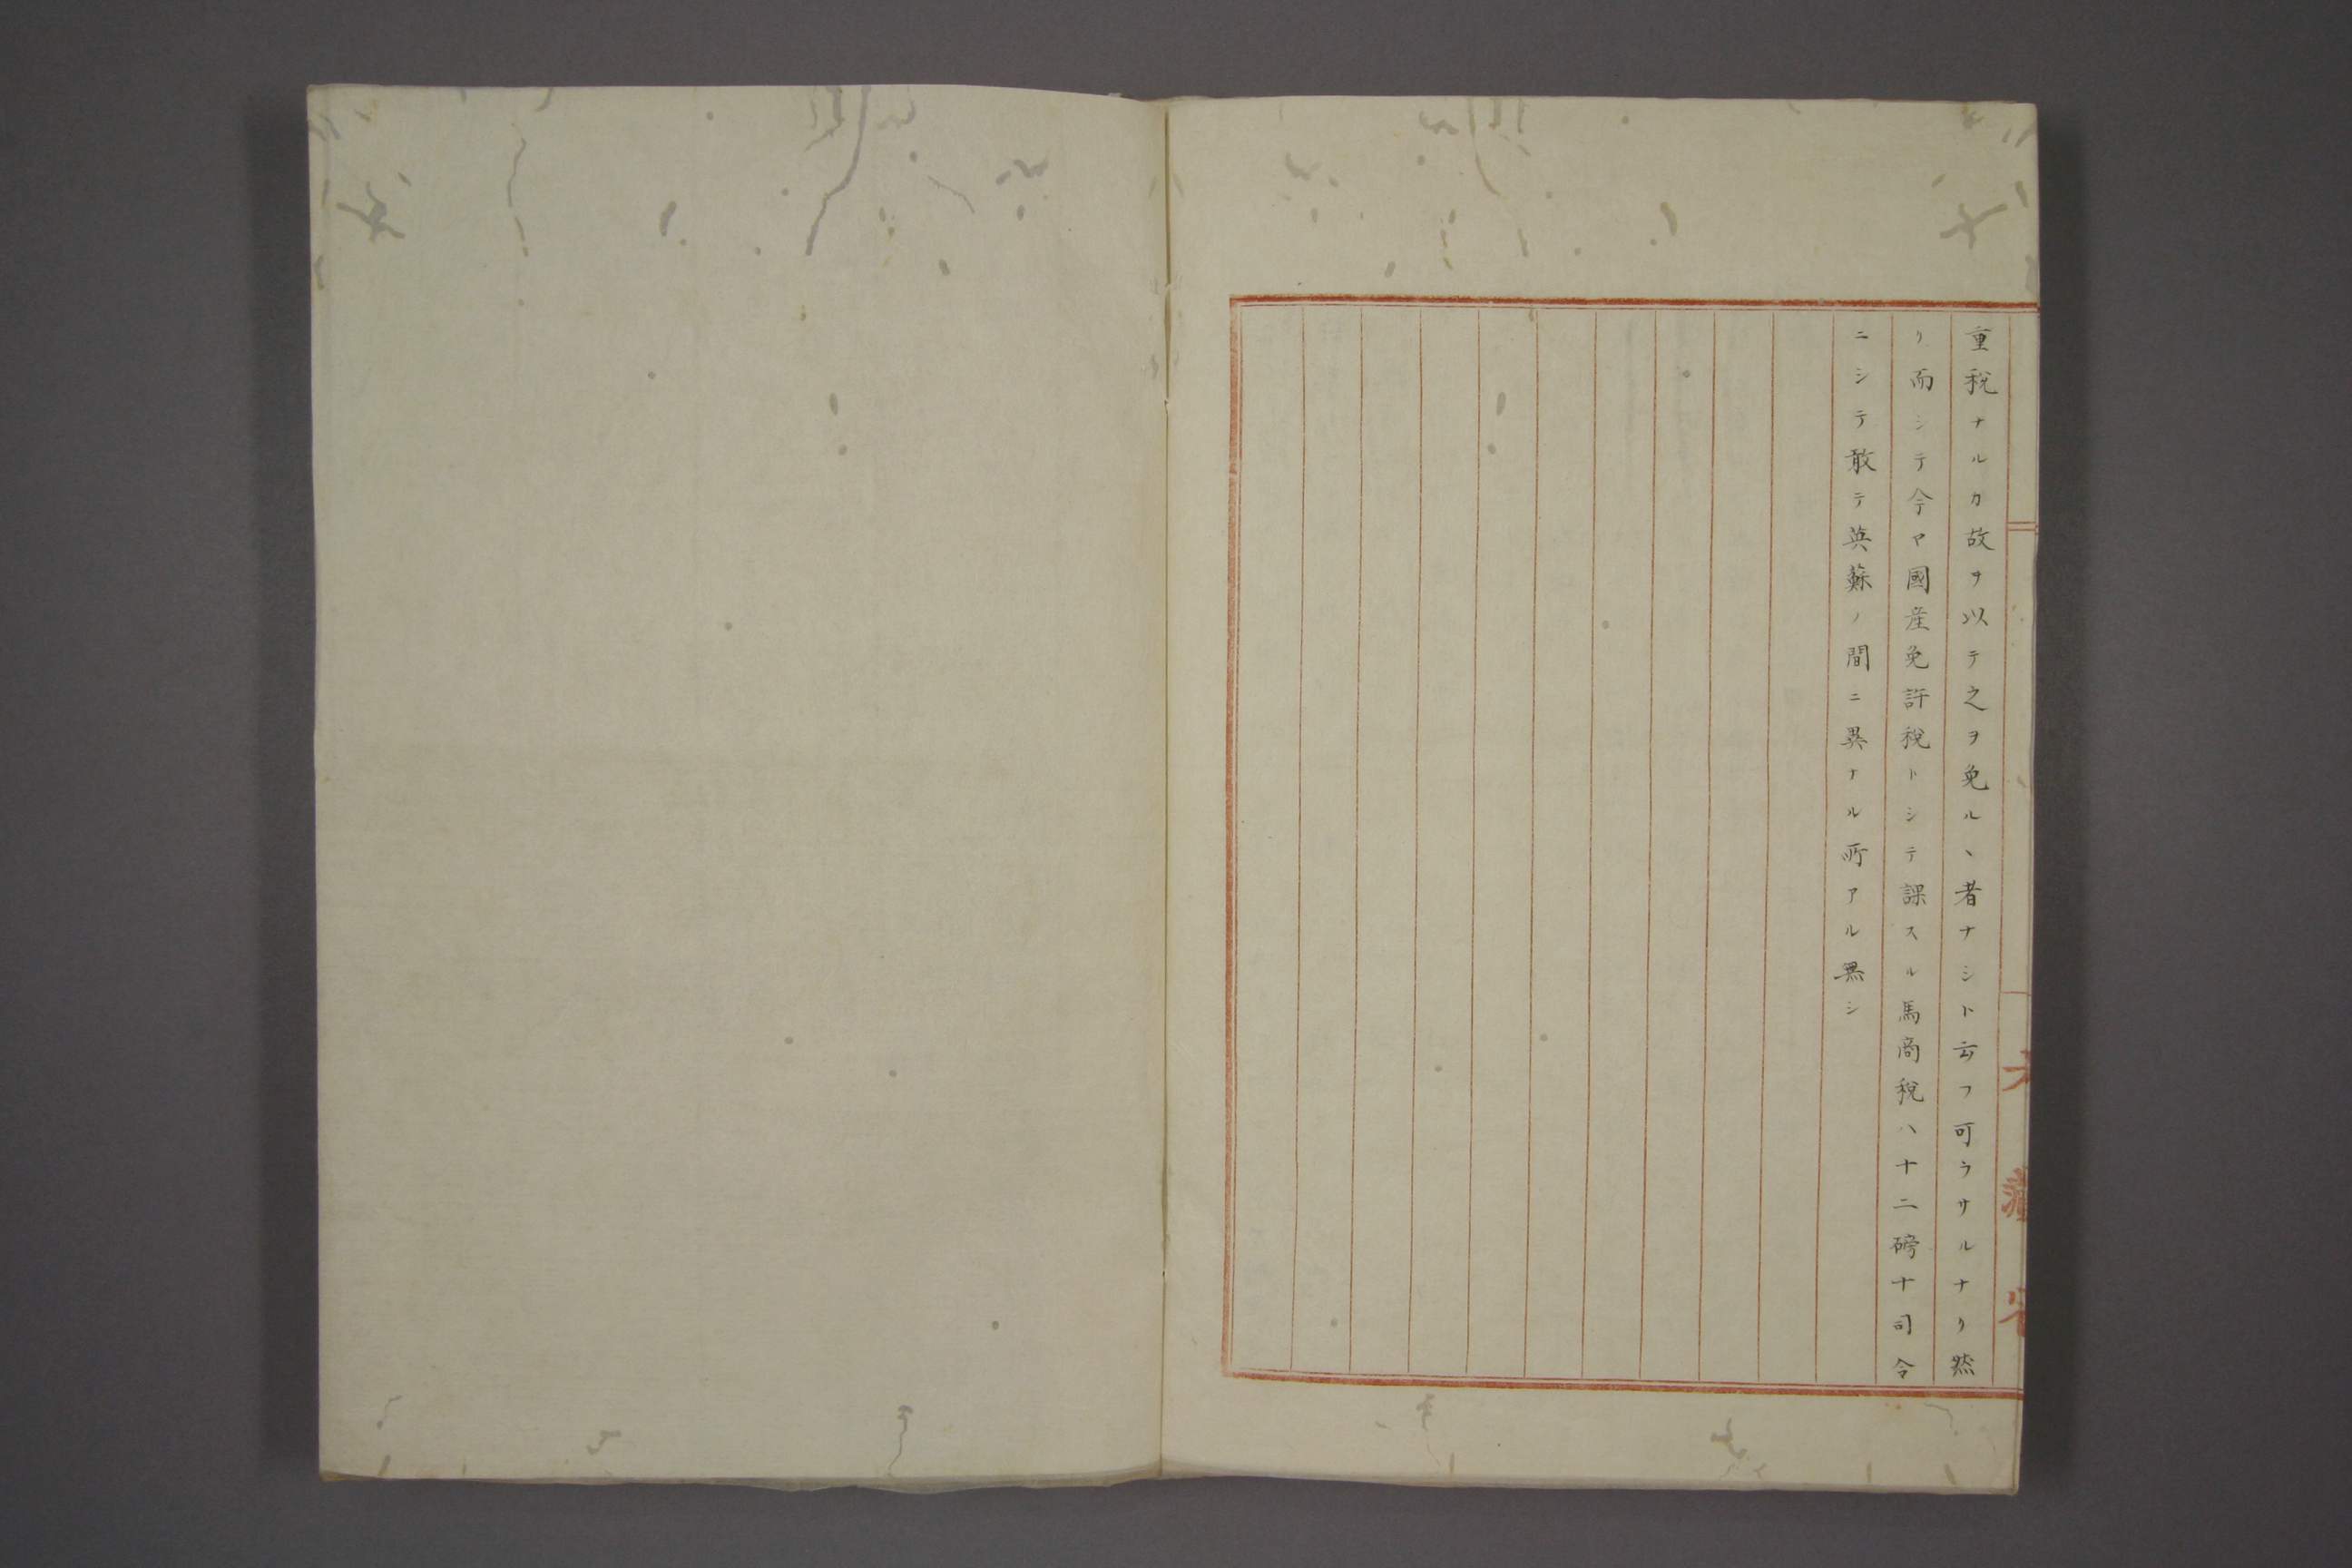 重稅ナルカ故ヲ以テ之ヲ免ルヽ者ナシト云フ可ラサルナリ然
リ而シテ今ヤ國産免許稅トシテ課スル馬商稅ハ十二磅十司令
ニシテ敢テ英蘇ノ間ニ異ナル所アル無シ